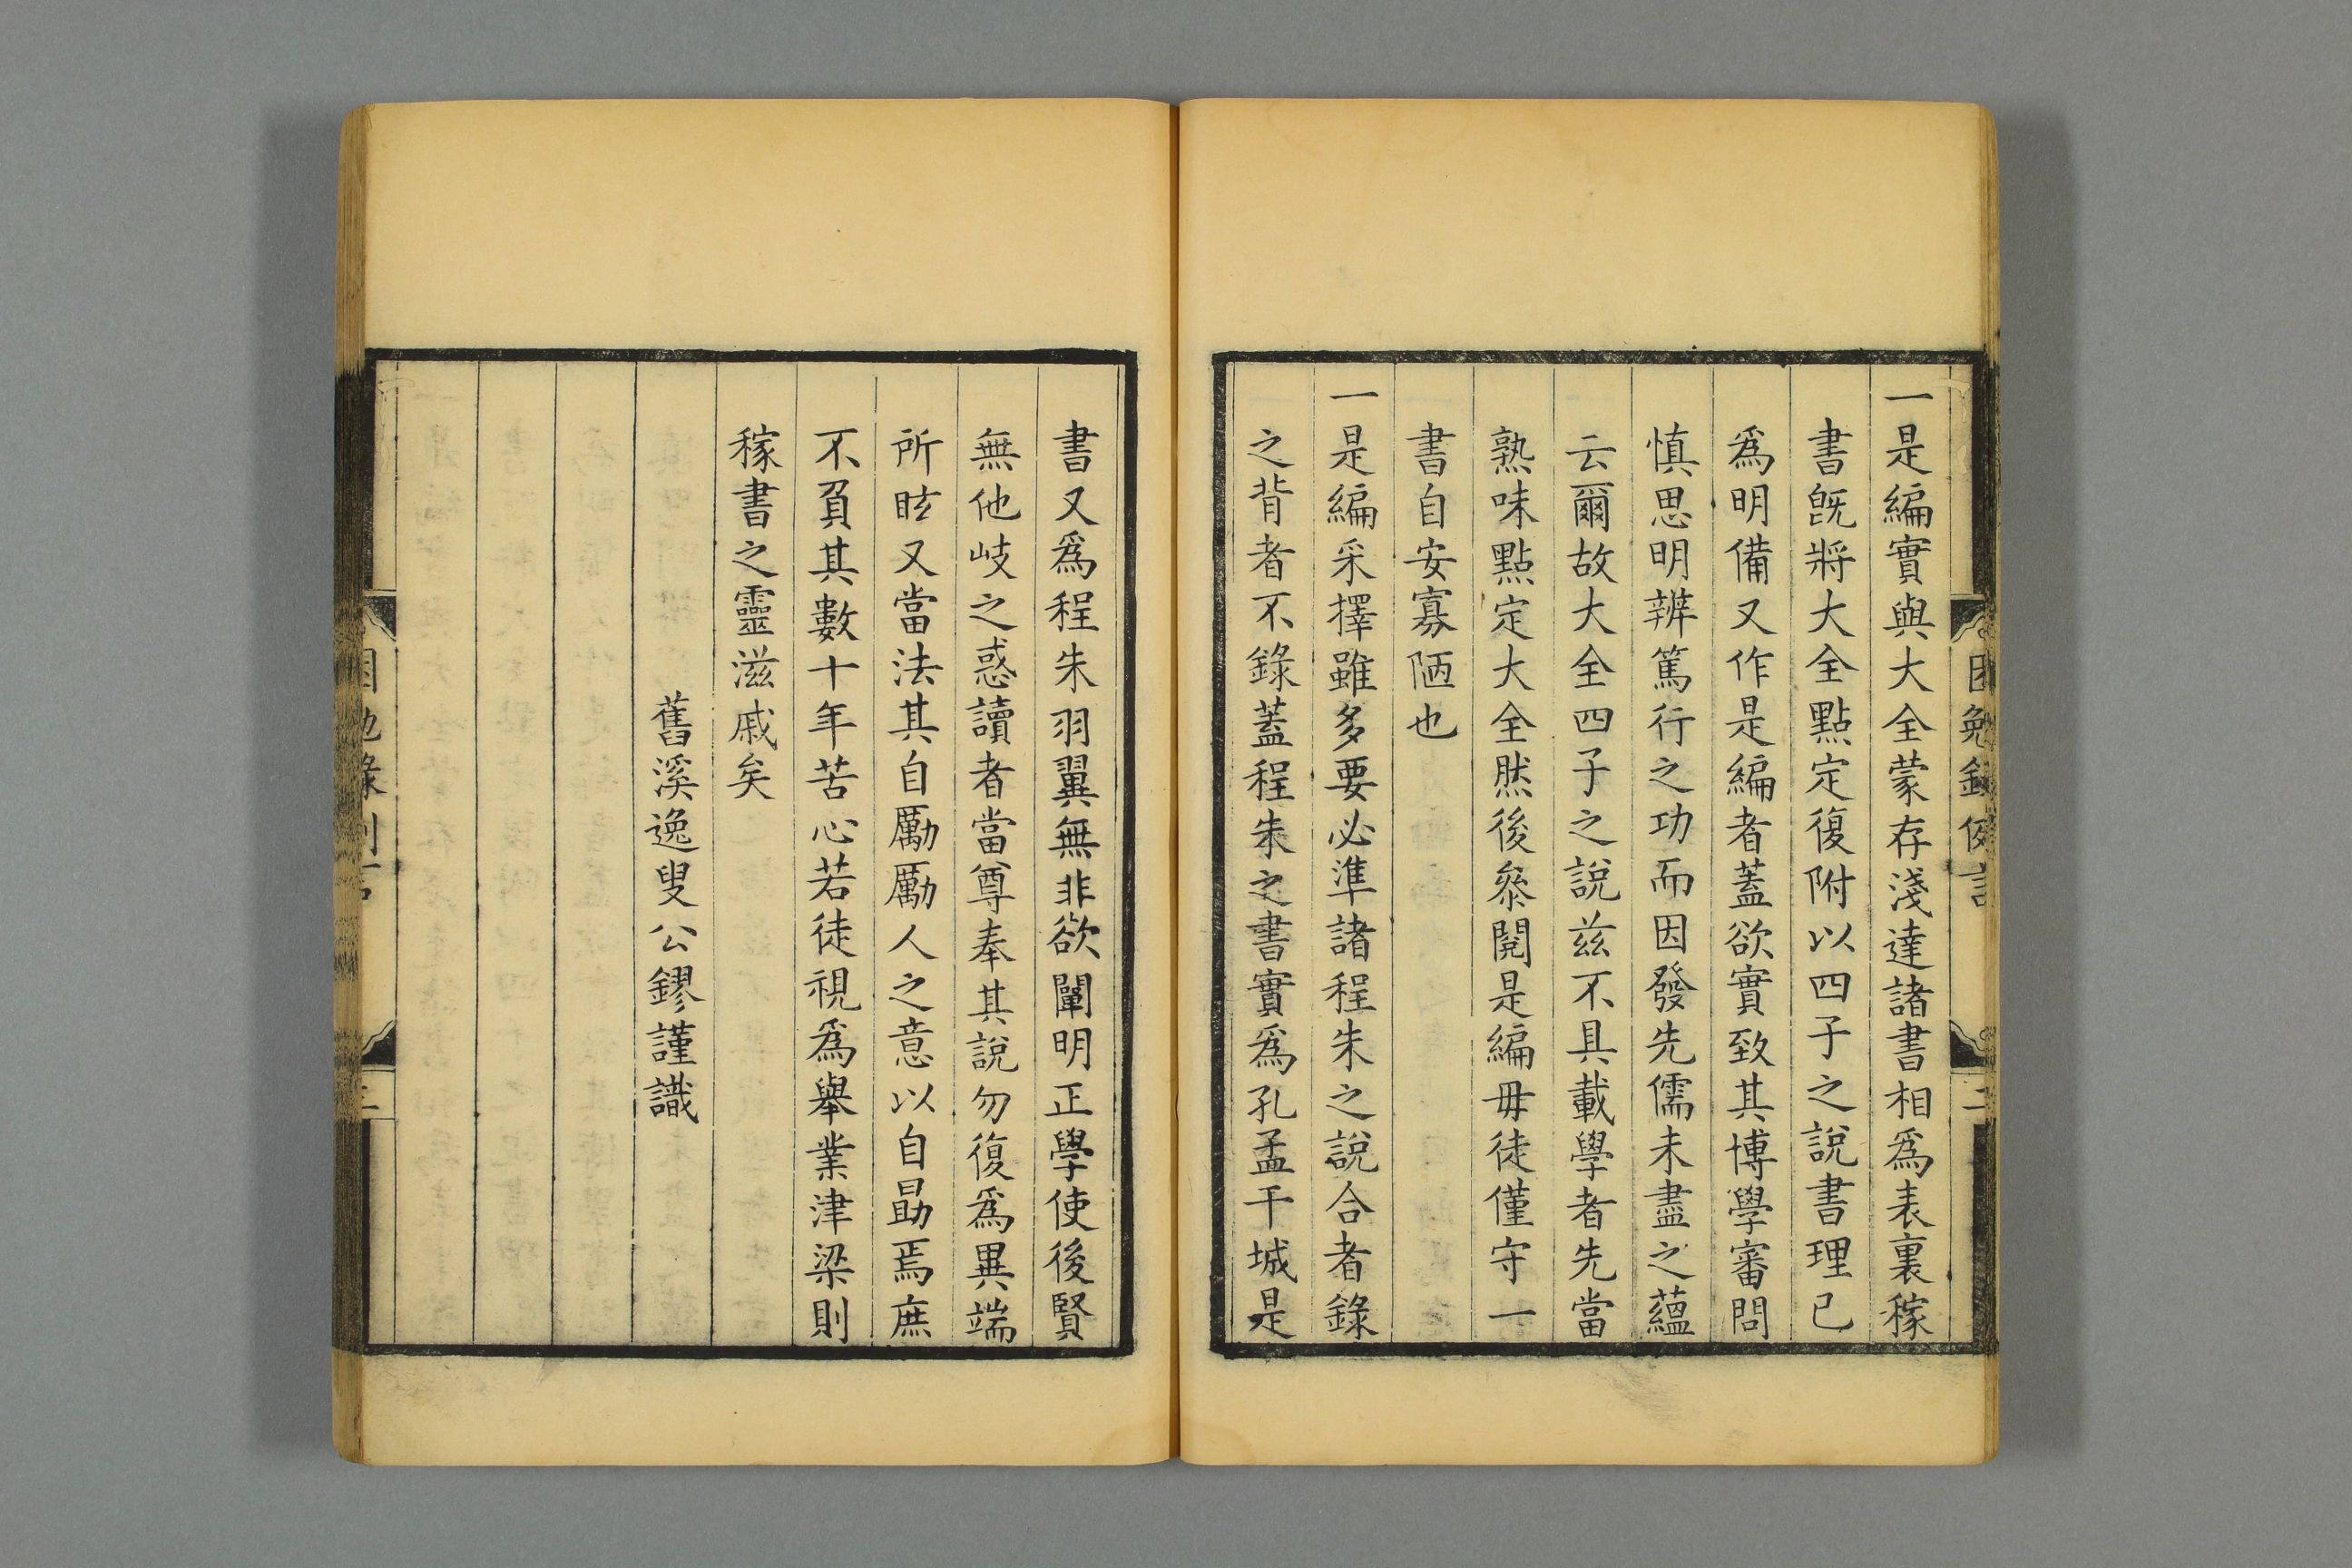 一是編實與大全蒙存淺達諸書相爲表裏稼
書旣將大全點定復附以四子之說書理已
爲明備又作是編者蓋欲實致其博學審問
慎思明辨篤行之功而因發先儒未盡之蘊
云爾故大全四子之說茲不具載學者先當
熟味點定大全然後叅閱是編毋徒僅守一
書自安寡陋也
一是編采擇雖多要必準諸程朱之說合者錄
之背者不錄蓋程朱之書實爲孔孟干城是
書又爲程朱羽翼無非欲闡明正學使後賢
無他岐之惑讀者當尊奉其說勿復爲異端
所眩又當法其自勵勵人之意以自勗焉庶
不負其數十年苦心若徒視爲舉業津梁則
稼書之靈滋戚矣
舊溪逸叟公鏐謹識
困勉錄例言
二